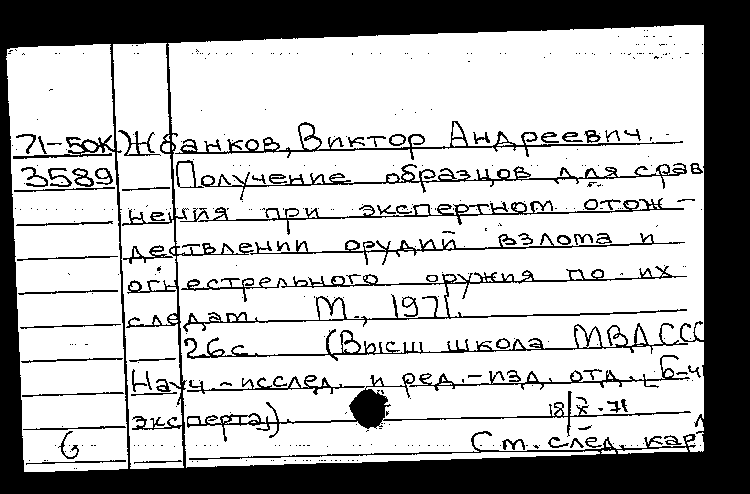 71-50К Жбанков, Виктор Андреевич.
3589 Получение образцов для срав
нения при экспертном отож-
дествлении орудий взлома и
огнестрельного оружия по их
следам. М., 1971.
26 с. (Высш школа МВД ССС
Науч.-исслед. и ред.-изд. отд., Б-чк
эксперта).
18/X-71
6 См. след. карт